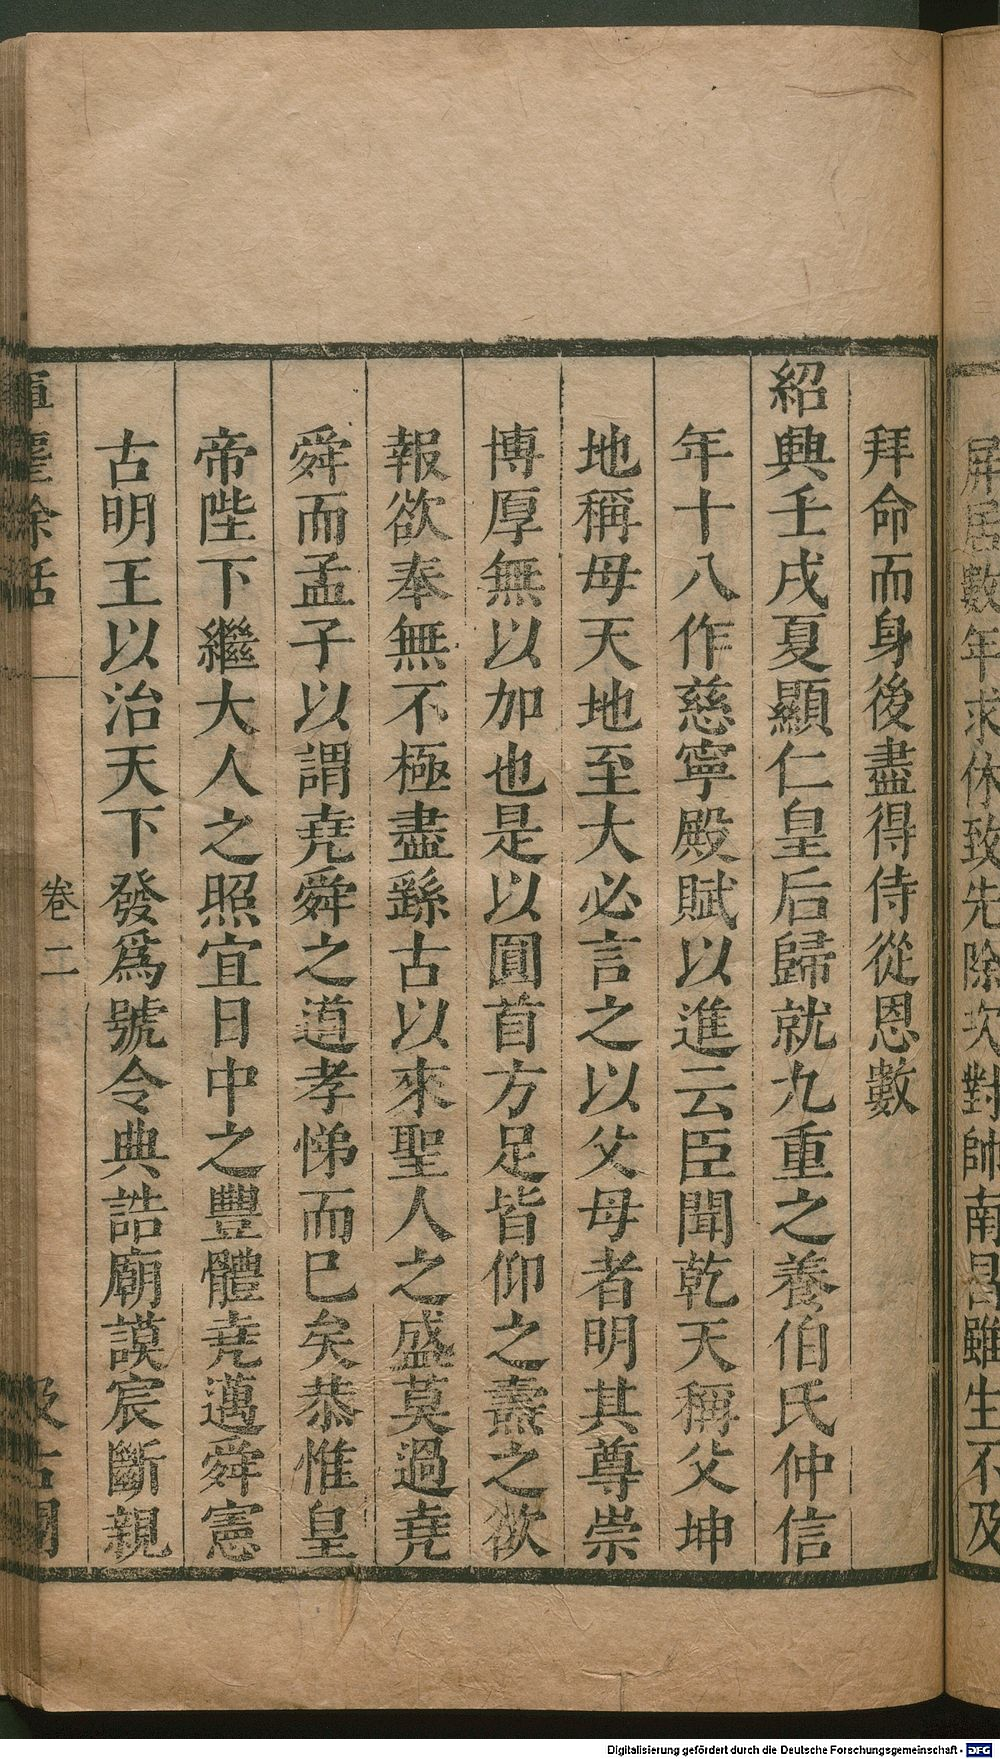 屏居數年求休致先除次對帥南昌雖生不及
拜命而身後盡得侍從恩數
紹興壬戌夏顯仁皇后歸就九重之養伯氏仲信
年十八作慈寧殿賦以進云臣聞乾天稱父坤
地稱母天地至大必言之以父母者明其尊崇
博厚無以加也是以圓首方足皆仰之燾之欲
報欲奉無不極盡繇古以來聖人之盛莫過堯
舜而孟子以謂堯舜之道孝悌而已矣恭惟皇
帝陛下繼大人之照宜日中之豐體堯邁舜憲
古明王以治天下發爲號令典誥廟謨宸斷親
揮麈餘話 卷二 汲古閣
Digitalisierung gefördert durch die Deutsche Forschungsgemeinschaft - DFG